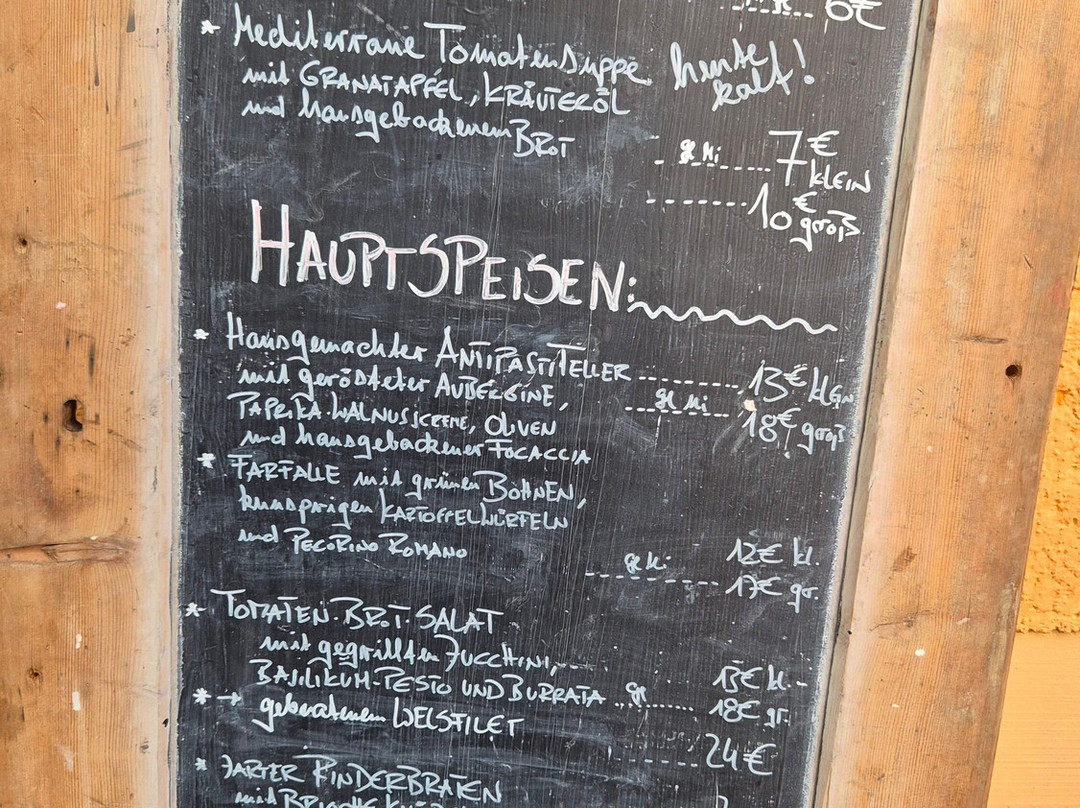 6€
* Mediterrane Tomatensuppe heute kalt!
mit GRANATAPFEL, KRÄUTERÖL
und hausgebackenem BROT
7€ KLEIN
10€ groß
HAUPTSPEISEN:
* Hausgemachter ANTIPASTITELLER 13€ klein
mit gerösteter AUBERGINE,
PAPRIKA-WALNUSSCREME, OLIVEN 18€ groß
und hausgebackener FOCACCIA
* FARFALLE mit grünen BOHNEN,
knusprigen KARTOFFELWÜRFELN
und PECORINO ROMANO 12€ kl.
17€ gr.
* TOMATEN-BROT-SALAT
mit gegrillten ZUCCHINI,
BASILIKUM-PESTO UND BURRATA 13€ kl.
18€ gr.
* → gebratenem WELSFILET
24€
* ZARTER RINDERBRATEN
mit